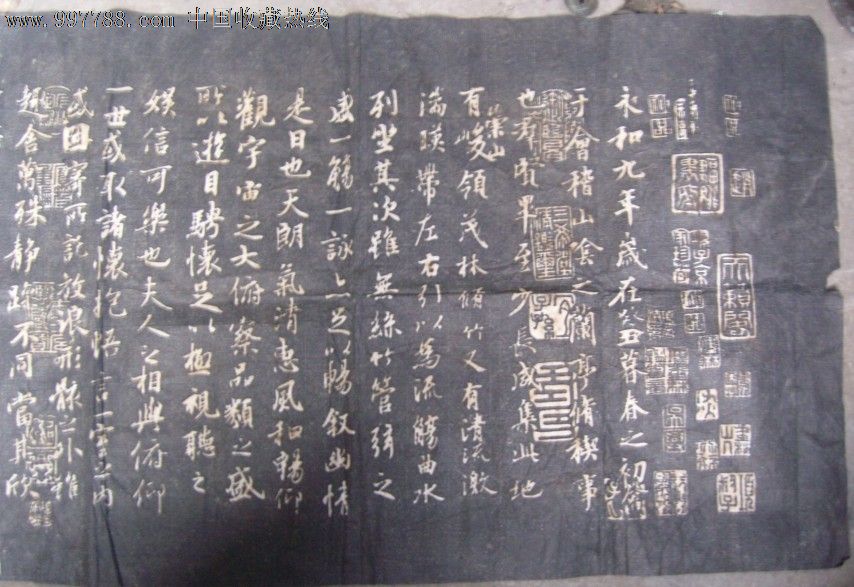 www.997788.com 中国收藏热线
永和九年歲在癸丑暮春之初會
于會稽山陰之蘭亭脩稧事
也羣賢畢至少長咸集此地
有崇山峻領茂林脩竹又有清流激
湍暎帶左右引以為流觴曲水
列坐其次雖無絲竹管弦之
盛一觴一詠亦足以暢敘幽情
是日也天朗氣清惠風和暢仰
觀宇宙之大俯察品類之盛
所以遊目騁懷足以極視聽之
娛信可樂也夫人之相與俯仰
一世或取諸懷抱悟言一室之內
或因寄所託放浪形骸之外雖
趣舍萬殊靜躁不同當其欣